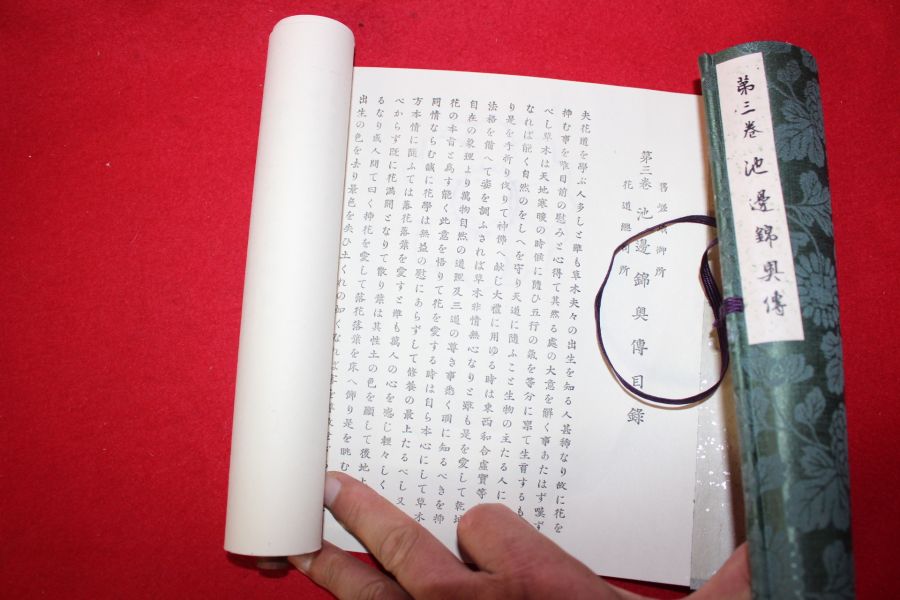 第三巻 池邊錦奥傳
舊嵯峨御所
花道總司所
第三巻 池邊錦奥傳目錄
夫花道を學ぶ人多しと雖も草木夫々の出生を知る人甚稀なり故に花を
挿む事を唯目前の慰みと心得て其然る處の大意を解く事あたはず嘆ず
べし草木は天地寒暖の時候に隨ひ五行の氣を等分に禀て生育するも
なれば能く自然のをしへを守り天道に隨ふこと生物の主たる人に
り是を手折り伐りて神佛へ献じ大禮に用ゆる時は東西和合虚實等
法格を備へて姿を調ふされば草木非情無心なりと雖も是を愛して乾坤
自在の象理より萬物自然の道理及三道の尊き事悉く頭に知るべきを挿
花の本旨と爲す能く此意を悟りて花を愛する時は自ら本心にして草木
同情ならむ誠に花學は無益の慰にあらずして修養の最上たるべし又
方本情に隨ふては落花落葉を愛すと雖も萬人の心を感じ輕々しく
べからず既に花満開となりて散り葉は其性土の色を顯して後地上
るなり或人問て曰く挿花を愛して落花落葉を床へ飾り是を眺む
出生の色を去り景色を失ひ土くれの如くなれば